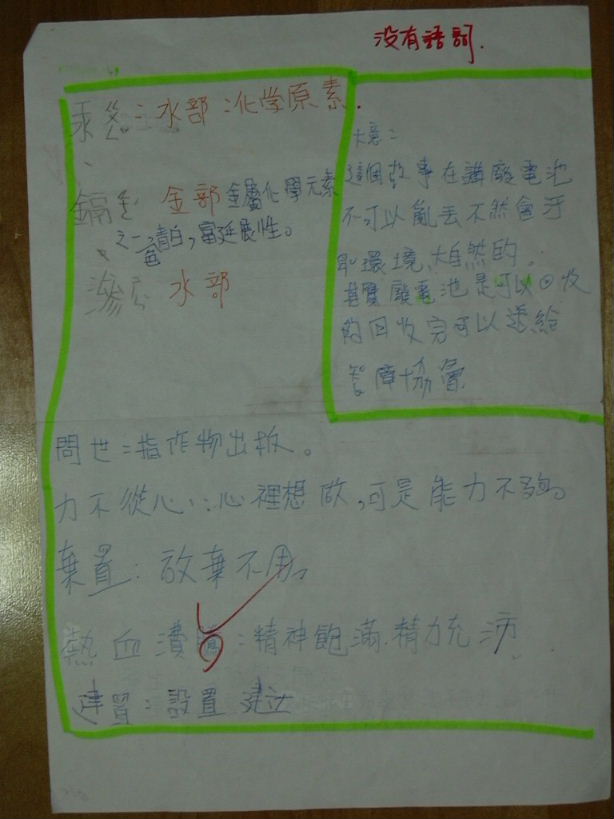 没有語詞.
汞ㄍㄨㄥˇ:水部:化学原素.
鎘ㄍㄜˊ 金部 金屬化學元素
之一,青白色,富延展性。
滲ㄕㄣˋ 水部
大意:
這個故事在講廢電池
不可以亂丟不然會汙
環境、大自然的。
其實廢電池是可以回收
的回收完可以送給
智障協會
問世:指作物出板。
力不從心:心裡想做,可是能力不夠。
棄置:放棄不用。
熱血:精神飽滿.精力充沛
建置:設置 建立